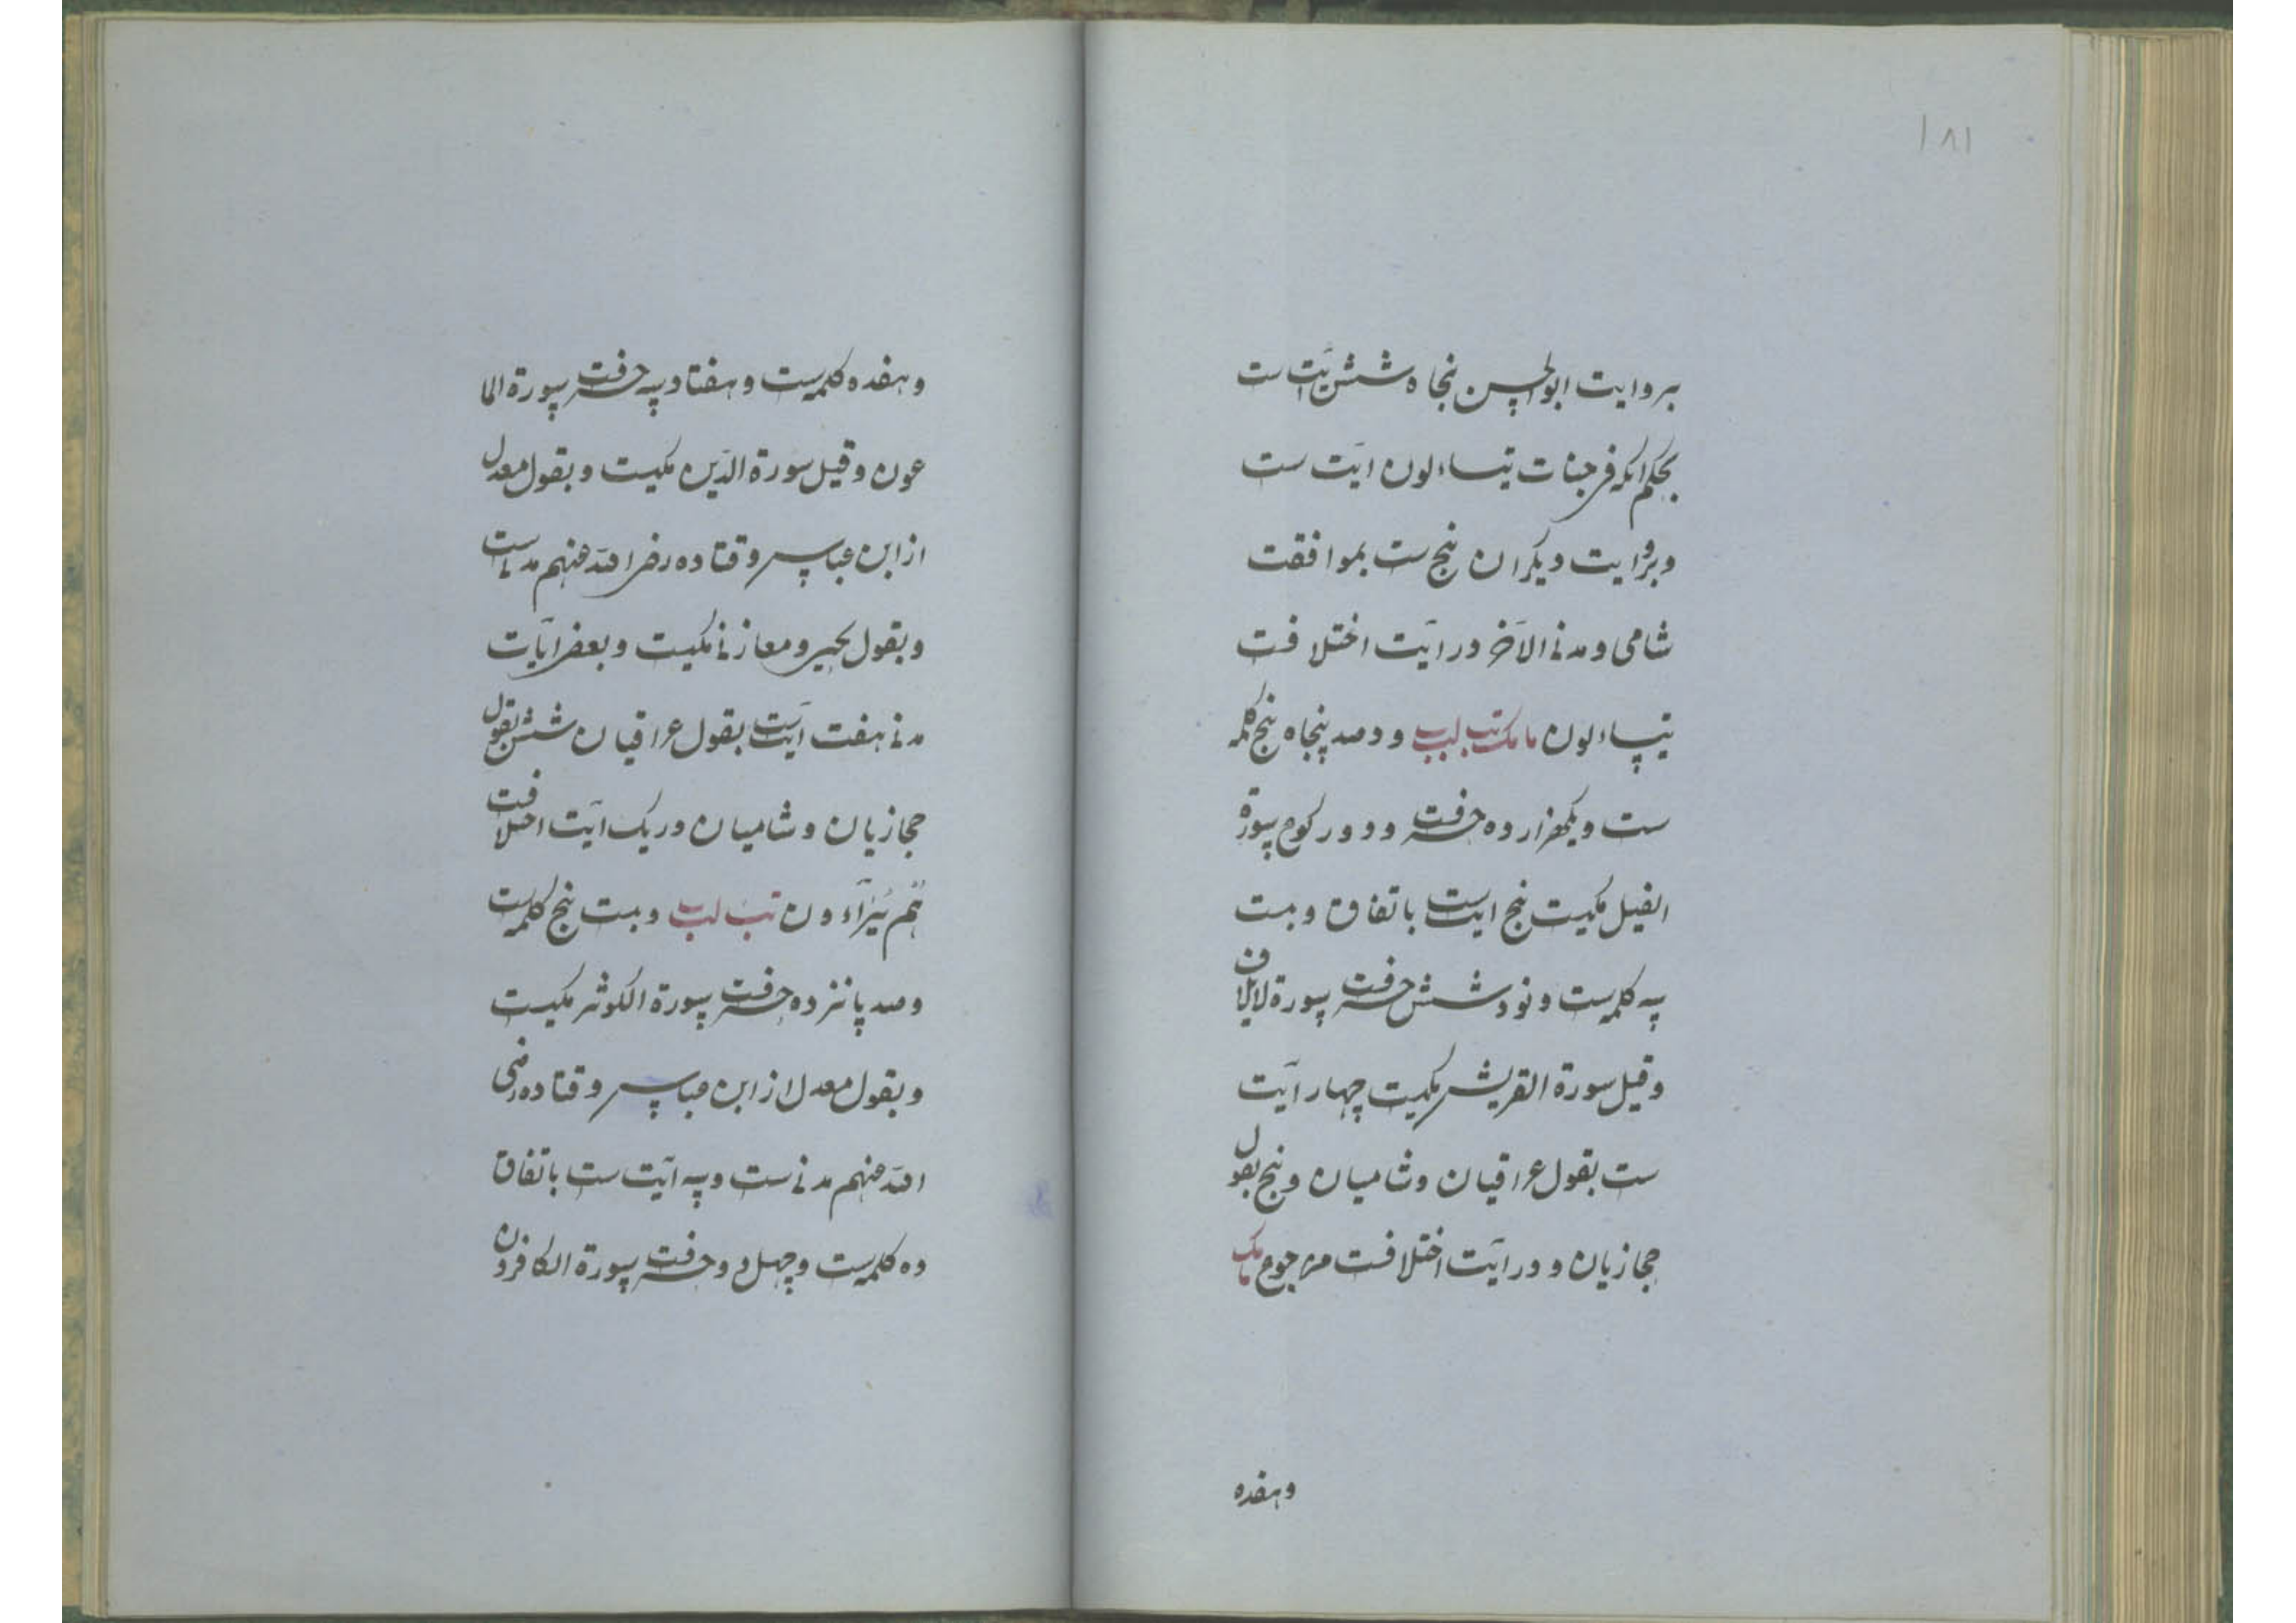 ۱۸۱
بروایت ابوالحسن پنجاه شش آیت ست
بحکم آنکه فی جنات یتساءلون آیت ست
وبروایت دیکران پنج ست بموافقت
شامی و مدنی الآخر در آیت اختلافت
یتساءلون مامک تب لب و دو صد پنجاه پنج کلمه
ست و یکهزار ده حرفت و دو رکوع سورة
الفیل مکیست پنج ایتست باتفاق و بست
سه کلمه ست و نود شش حرفت سورة لایلاف
وقیل سورة القریش مکیست چهار آیت
ست بقول عراقیان و شامیان و پنج بقول
حجازیان و در آیت اختلافت من جوع مامک
وهفده
وهفده کلمه ست و هفتاد سه حرفت سورة الما
عون وقیل سورة الدین مکیست و بقول معدل
از ابن عباس و قتاده رضی الله عنهم مدنی ست
و بقول یحیی و معاز نی مکیست و بعضی ایات
مدنی هفت آیتست بقول عراقیان شش بقول
حجازیان و شامیان در یک آیت اختلافت
هُم یُرَآءون تب لب و بست پنج کلمه ست
و صد پانزده حرفت سورة الکوثر مکیست
و بقول معدل از ابن عباس و قتاده رضی
الله عنهم مدنی ست و سه آیت ست باتفاق
ده کلمه ست و چهل و دو حرفت سورة الکافرون